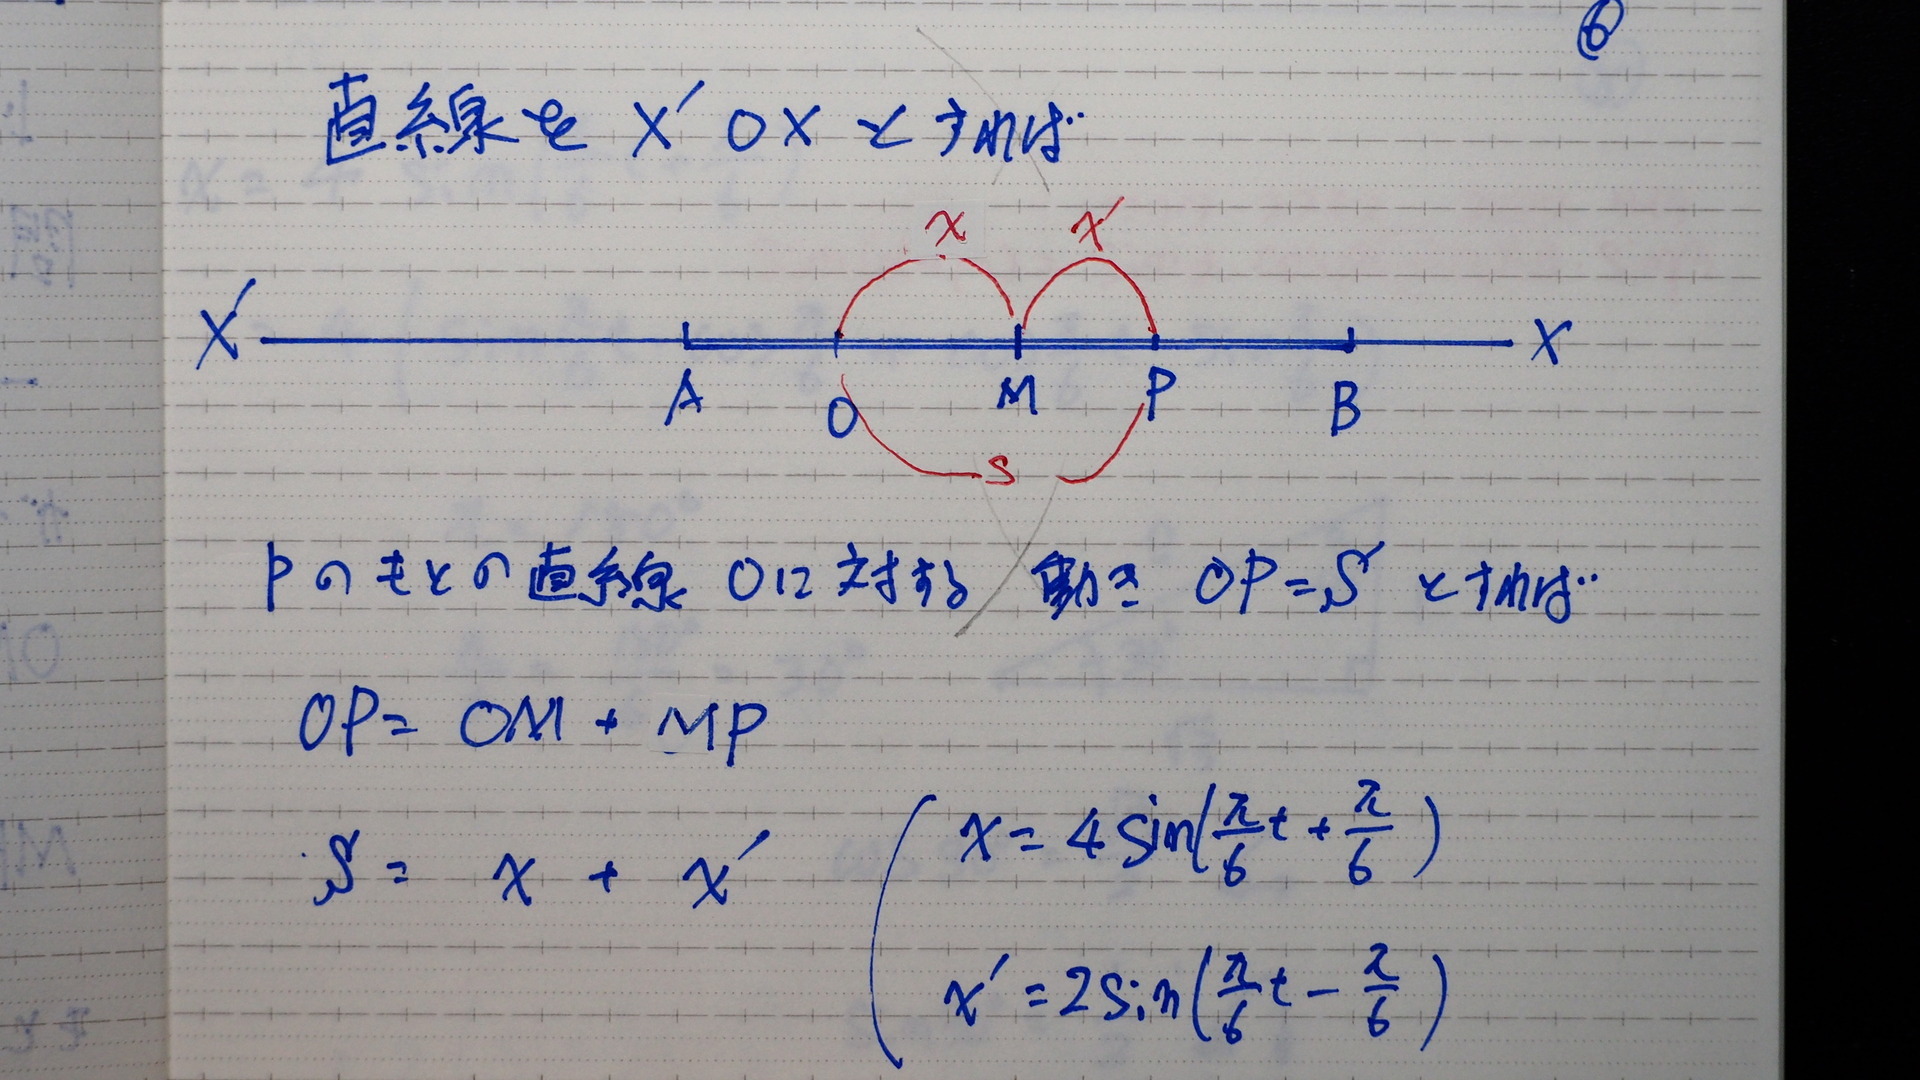 ⑥
直線を X′OX とすれば
x x′
X′ X
A O M P B
s
Pのもとの直線 Oに対する 動き OP=S とすれば
OP= OM + MP
S= x + x′
x=4sin(π/6 t+π/6)
x′=2sin(π/6 t-π/6)